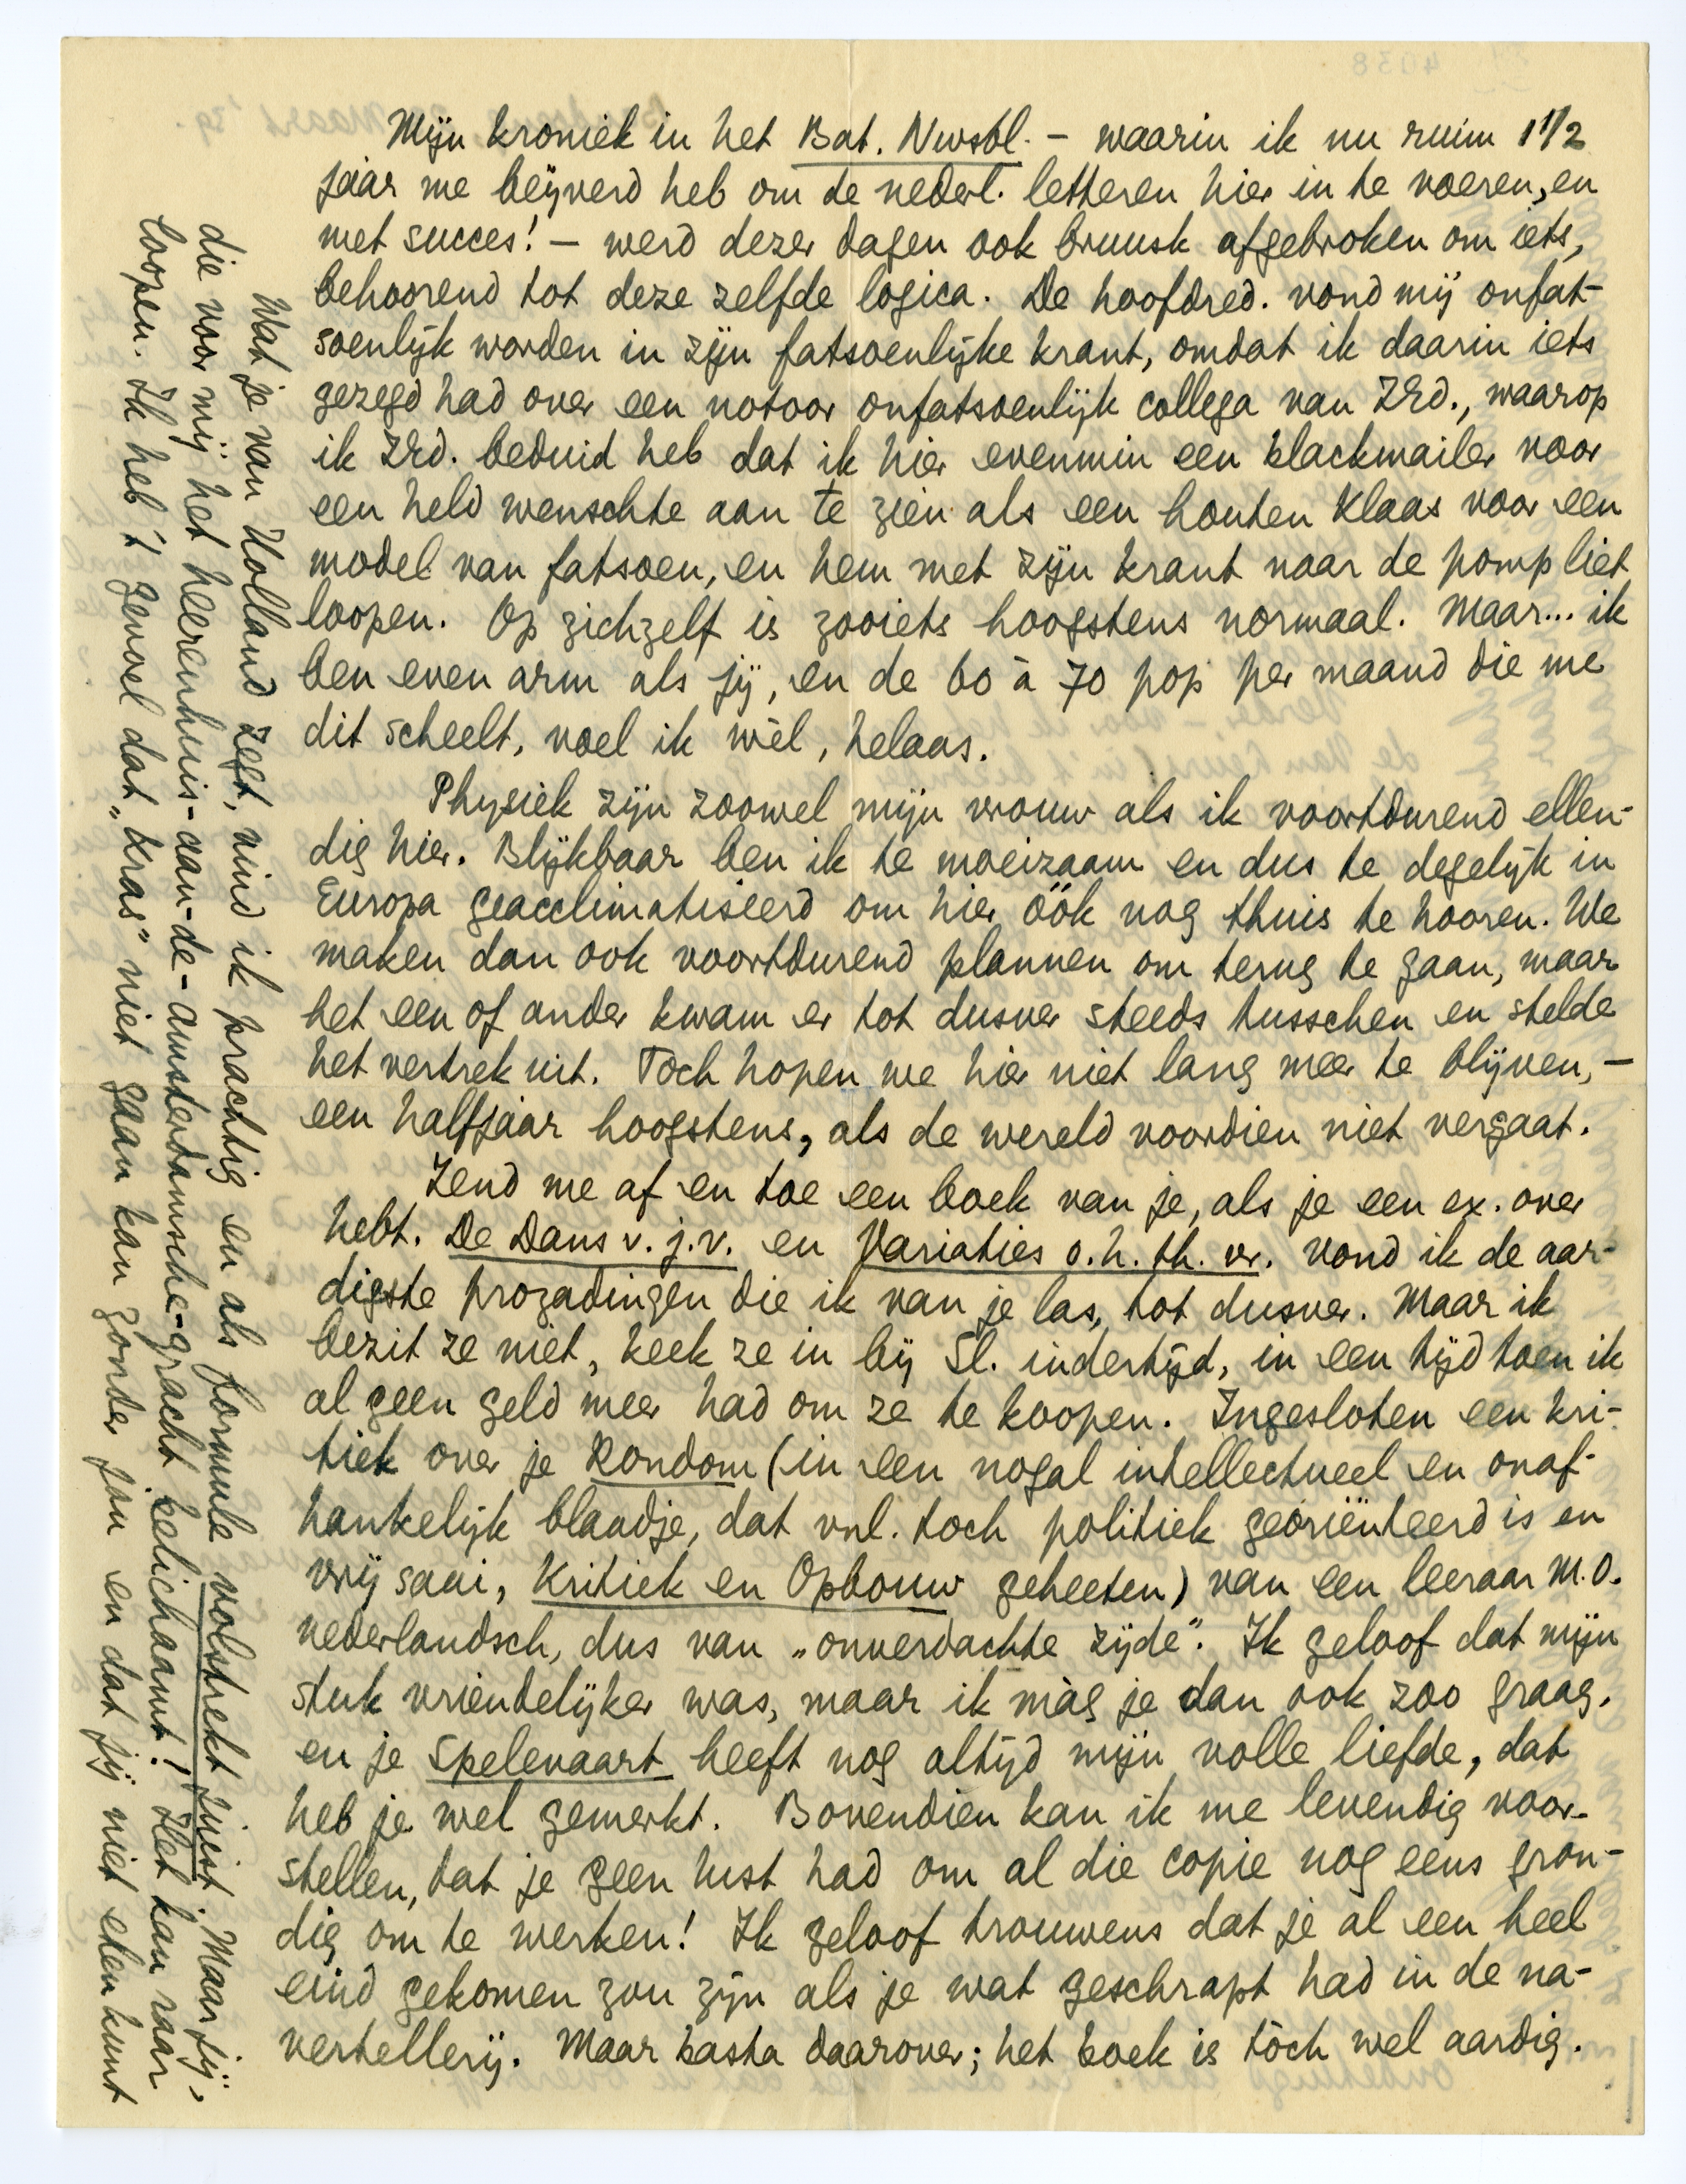 Mijn kroniek in het Bat. Nwsbl. – waarin ik nu ruim 1 1/2
jaar me beijverd heb om de nederl. letteren hier in te voeren, en
met succes! – werd dezer dagen ook bruusk afgebroken om iets,
behoorend tot deze zelfde logica. De hoofdred. vond mij onfat-
soenlijk worden in zijn fatsoenlijke krant, omdat ik daarin iets
gezegd had over een notoor onfatsoenlijk collega van ZEd., waarop
ik ZEd. beduid heb dat ik hier evenmin een blackmailer voor
een held wenschte aan te zien als een houten Klaas voor een
model van fatsoen, en hem met zijn krant naar de pomp liet
loopen. Op zichzelf is zooiets hoogstens normaal. Maar... ik
ben even arm als jij, en de 60 à 70 pop per maand die me
dit scheelt, voel ik wèl, helaas.
Physiek zijn zoowel mijn vrouw als ik voortdurend ellen-
dig hier. Blijkbaar ben ik te moeizaam en dus te degelijk in
Europa geacclimatiseerd om hier óók nog thuis te hooren. We
maken dan ook voortdurend plannen om terug te gaan, maar
het een of ander kwam er tot dusver steeds tusschen en stelde
het vertrek uit. Toch hopen we hier niet lang meer te blijven, –
een halfjaar hoogstens, als de wereld voordien niet vergaat.
Zend me af en toe een boek van je, als je een ex. over
hebt. De Dans v. j. v. en Variaties o. h. th. vr. vond ik de aar-
digste prozadingen die ik van je las, tot dusver. Maar ik
bezit ze niet, keek ze in bij Sl. indertijd, in een tijd toen ik
al geen geld meer had om ze te koopen. Ingesloten een kri-
tiek over je Rondom (in een nogal intellectueel en onaf-
hankelijk blaadje, dat vnl. toch politiek georiënteerd is en
vrij saai, Kritiek en Opbouw geheeten) van een leeraar M.O.
nederlandsch, dus van „onverdachte zijde”. Ik geloof dat mijn
stuk vriendelijker was, maar ik màg je dan ook zoo graag.
en je Spelevaart heeft nog altijd mijn volle liefde, dat
heb je wel gemerkt. Bovendien kan ik me levendig voor-
stellen, dat je geen lust had om al die copie nog eens gron-
dig om te werken! Ik geloof trouwens dat je al een heel
eind gekomen zou zijn als je wat geschrapt had in de na-
vertellerij. Maar basta daarover; het boek is tòch wel aardig.
Wat je van Holland zegt, vind ik prachtig en als formule volstrekt juist. Maar jij,
die voor mij het heerenhuis-aan-de-amsterdamsche-gracht belichaamt! Het kan raar
loopen. Ik heb 't gevoel dat „Kras” niet gaan kan zonder jou en dat jij niet eten kunt